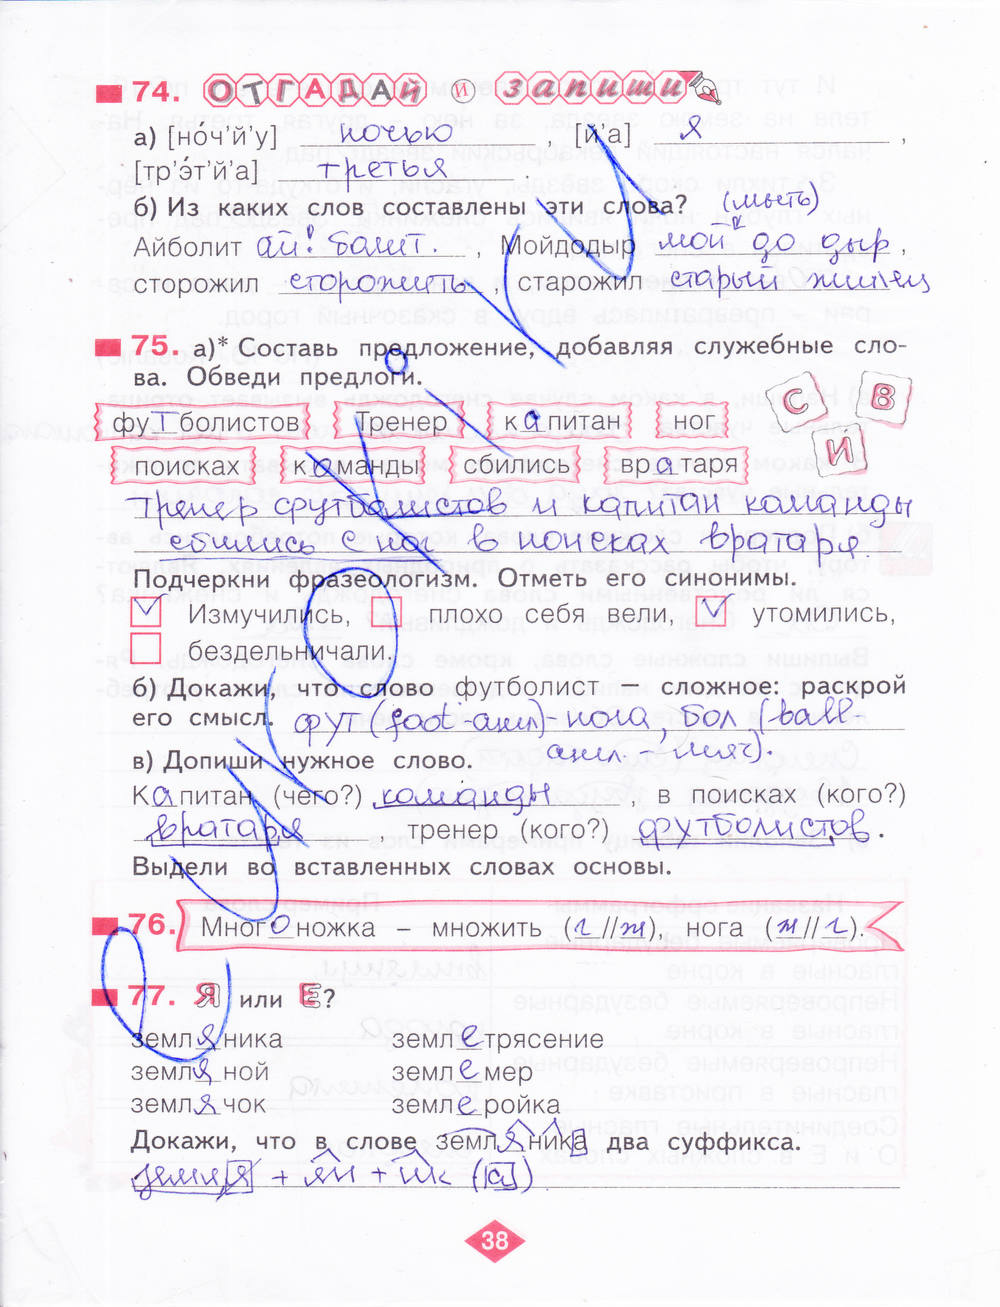 74. ОТГАДАЙ и запиши
а) [но́ч'й'у] ночью, [й'а] я,
[тр'э́т'й'а] третья.
б) Из каких слов составлены эти слова? (мыть)
Айболит ай! болит., Мойдодыр мой до дыр,
сторожил сторожить, старожил старый жилец
75. а)* Составь предложение, добавляя служебные сло-
ва. Обведи предлоги.
С В И
футболистов Тренер капитан ног
поисках команды сбились вратаря
Тренер футболистов и капитан команды
сбились с ног в поисках вратаря.
Подчеркни фразеологизм. Отметь его синонимы.
Измучились, плохо себя вели, утомились,
бездельничали.
б) Докажи, что слово футболист – сложное: раскрой
его смысл. фут (foot-англ) нога, бол (ball
англ. – мяч).
в) Допиши нужное слово.
Капитан (чего?) команды, в поисках (кого?)
вратаря, тренер (кого?) футболистов.
Выдели во вставленных словах основы.
76. Многоножка – множить (г//ж), нога (ж//г).
77. Я или Е?
земляника землетрясение
земляной землемер
землячок землеройка
Докажи, что в слове земляника два суффикса.
земля + ян + ик (а)
38